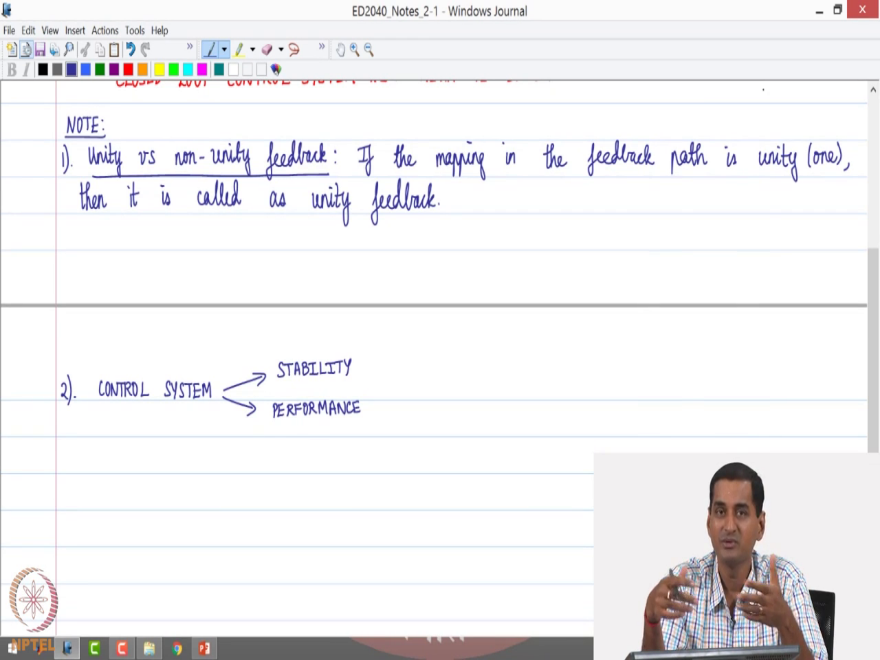 ED2040_Notes_2-1 - Windows Journal
File Edit View Insert Actions Tools Help
CLOSED LOOP CONTROL SYSTEM
NOTE:
1). Unity vs non-unity feedback: If the mapping in the feedback path is unity (one),
then it is called as unity feedback.
STABILITY
2). CONTROL SYSTEM
PERFORMANCE
NPTEL